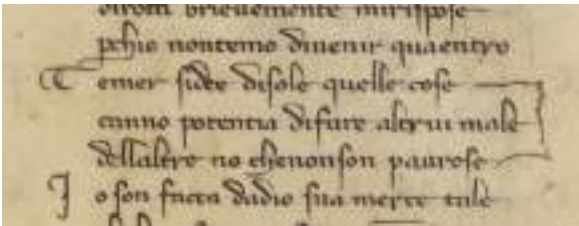 dirotti brievemente mirispose
perchio nontemo divenir quaentro
Temer sidee disole quelle cose
canno potentia difare altrui male
dellaltre no chenonson paurose
Io son facta dadio sua merce tale